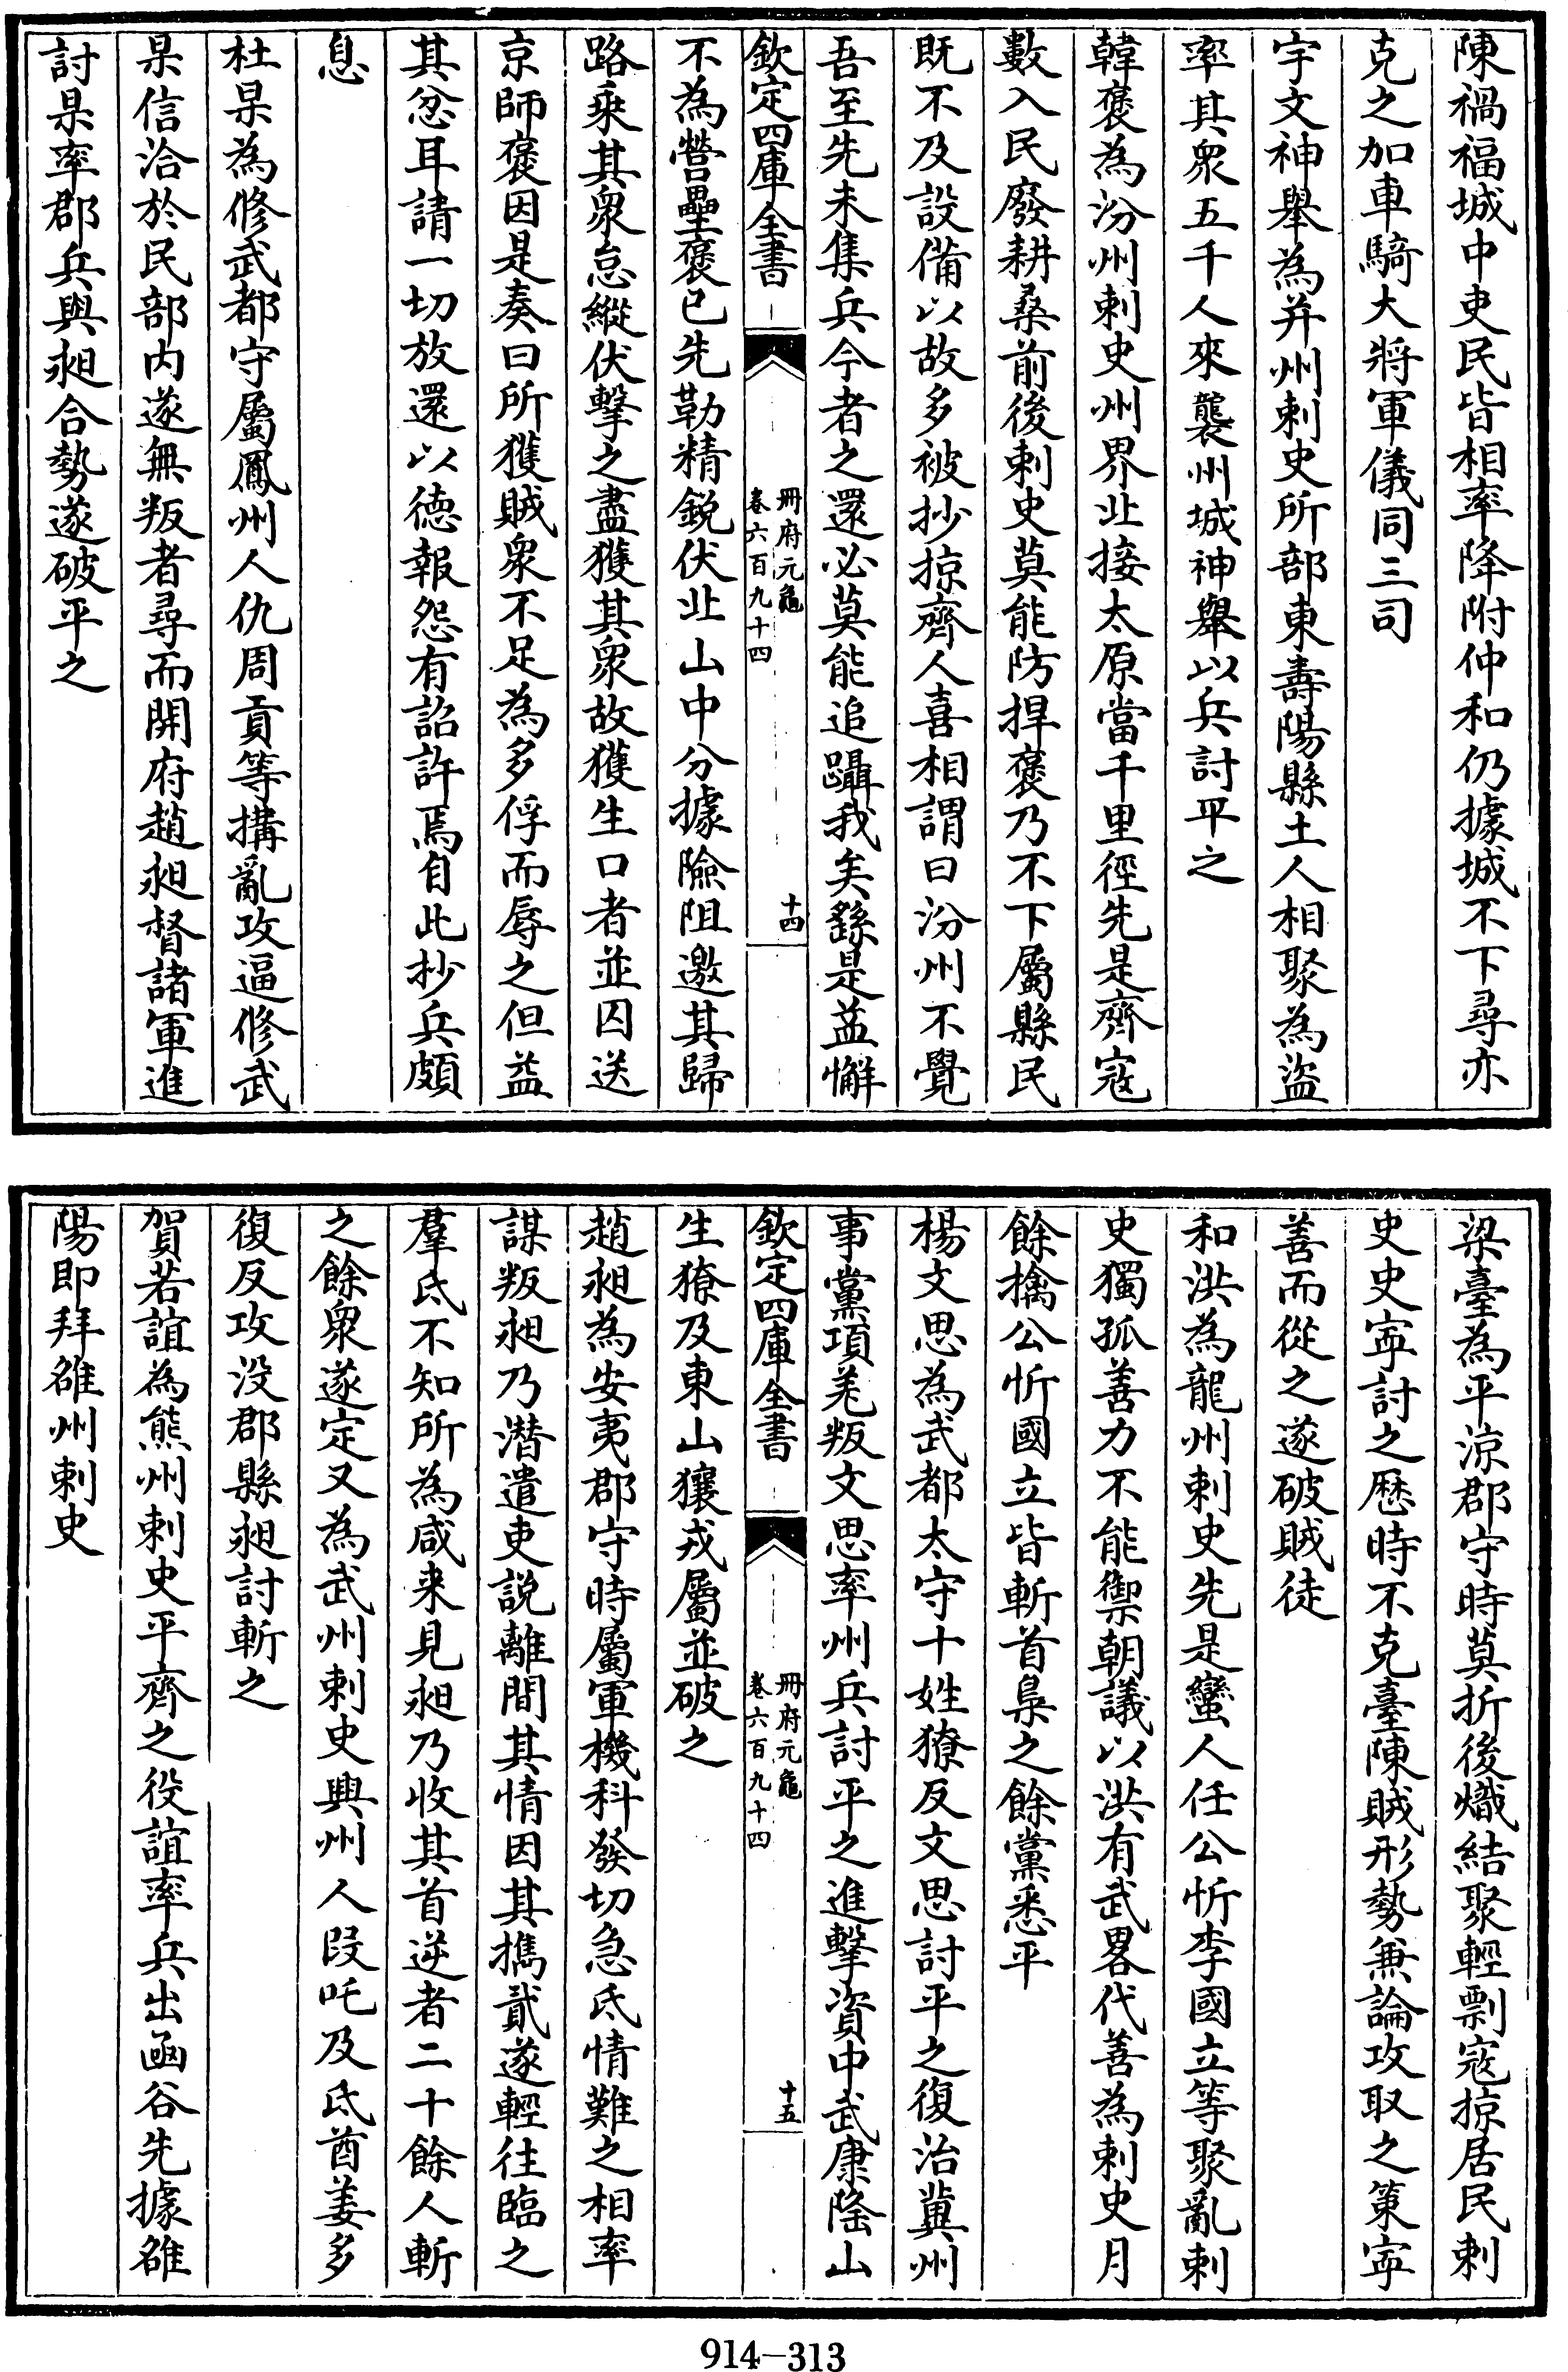 陳禍福城中吏民皆相率降附仲和仍據城不下尋亦
克之加車騎大將軍儀同三司
宇文神舉為并州刺史所部東壽陽縣土人相聚為盜
率其衆五千人來襲州城神舉以兵討平之
韓褒為汾州刺史州界北接太原當千里徑先是齊宼
數入民廢耕桑前後刺史莫能防捍褒乃不下屬縣民
既不及設備以故多被抄掠齊人喜相謂曰汾州不覺
吾至先未集兵今者之還必莫能追躡我矣繇是益懈
欽定四庫全書
冊府元龜
卷六百九十四
十四
不為營壘褒已先勒精鋭伏北山中分據險阻邀其歸
路乘其衆怠縱伏擊之盡獲其衆故獲生口者並囚送
京師褒因是奏曰所獲賊衆不足為多俘而辱之但益
其忿耳請一切放還以德報怨有詔許焉自此抄兵頗
息
杜杲為修武都守屬鳳州人仇周貢等搆亂攻逼修武
杲信洽於民部内遂無叛者尋而開府趙昶督諸軍進
討杲率郡兵與昶合勢遂破平之
梁臺為平涼郡守時莫折後熾結聚輕剽寇掠居民刺
史史寧討之歴時不克臺陳賊形勢兼論攻取之策寧
善而從之遂破賊徒
和洪為龍州刺史先是蠻人任公忻李國立等聚亂刺
史獨孤善力不能禦朝議以洪有武畧代善為刺史月
餘擒公忻國立皆斬首梟之餘黨悉平
楊文思為武都太守十姓獠反文思討平之復治冀州
事黨項羌叛文思率州兵討平之進擊資中武康隆山
欽定四庫全書
冊府元龜
卷六百九十四
十五
生獠及東山獽戎屬並破之
趙昶為安夷郡守時屬軍機科發切急氐情難之相率
謀叛昶乃潛遣吏説離間其情因其攜貳遂輕往臨之
羣氐不知所為咸来見昶乃收其首逆者二十餘人斬
之餘衆遂定又為武州刺史興州人段吒及氐酋姜多
復反攻没郡縣昶討斬之
賀若誼為熊州刺史平齊之役誼率兵出函谷先據雒
陽即拜雒州刺史
914-313